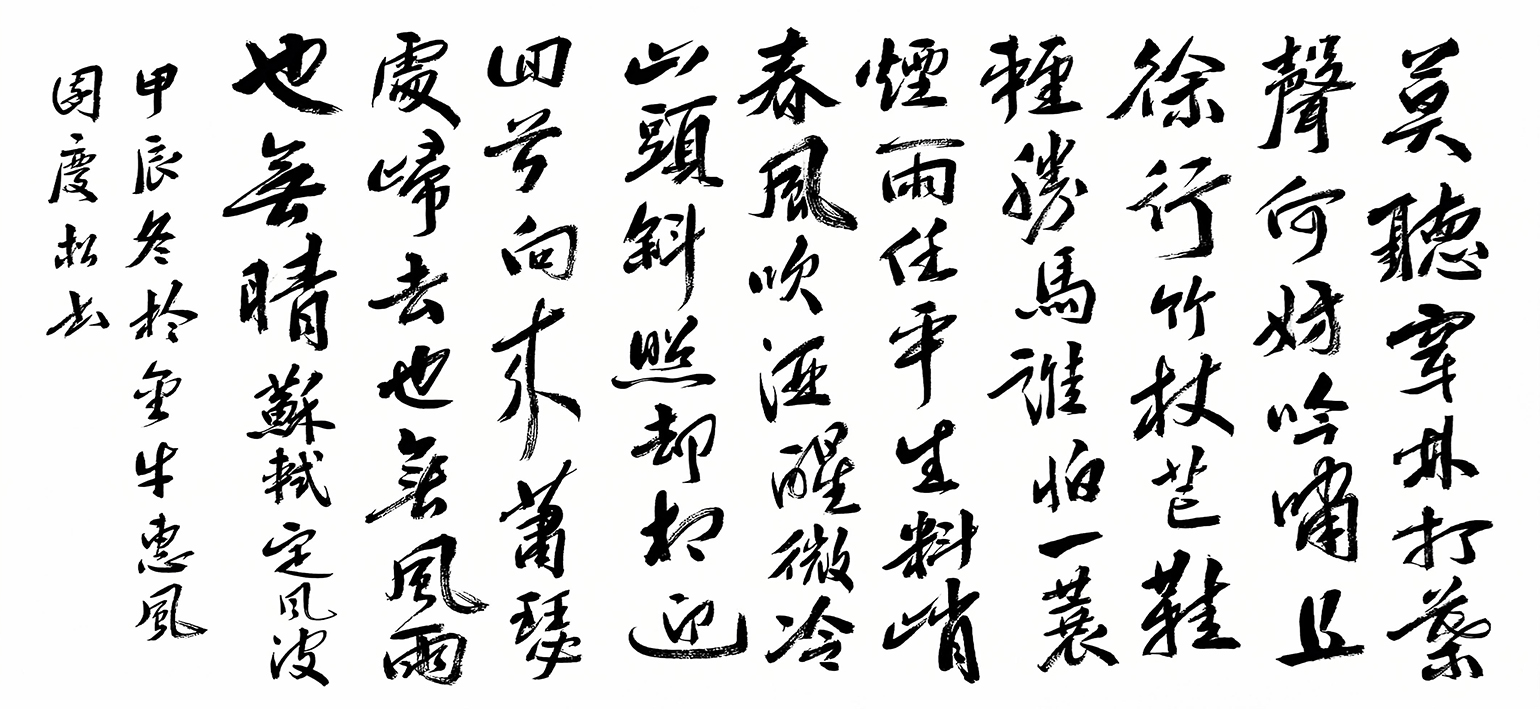 莫聽穿林打葉
聲何妨吟嘯且
徐行竹杖芒鞋
輕勝馬誰怕一蓑
煙雨任平生料峭
春風吹酒醒微冷
山頭斜照却相迎
回首向來蕭瑟
處歸去也無風雨
也無晴蘇軾定风波
甲辰冬於金牛惠風
國慶松书